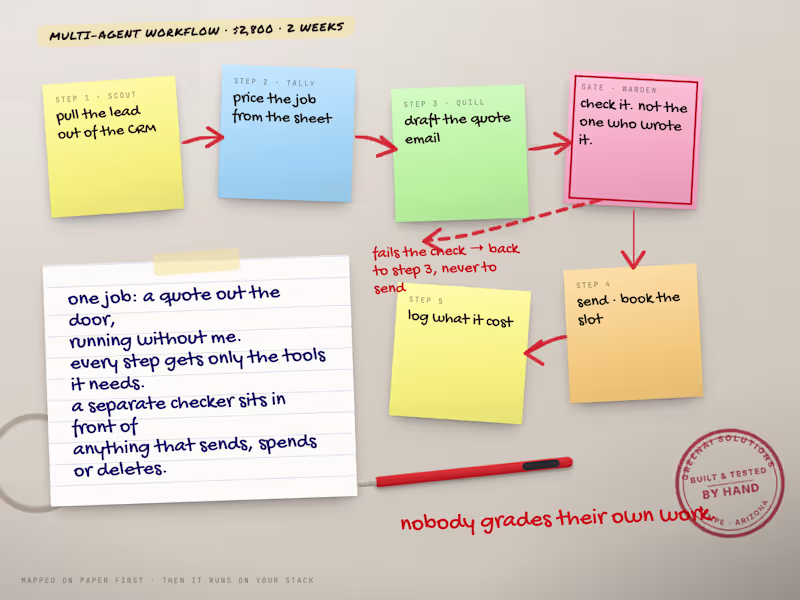 MULTI-AGENT WORKFLOW · $2,800 · 2 WEEKS
STEP 1 · SCOUT
pull the lead
out of the CRM
STEP 2 · TALLY
price the job
from the sheet
STEP 3 · QUILL
draft the quote
email
GATE · WARDEN
check it. not the
one who wrote
it.
fails the check → back
to step 3, never to
send
STEP 4
send · book the
slot
STEP 5
log what it cost
one job: a quote out the
door,
running without me.
every step gets only the tools
it needs.
a separate checker sits in
front of
anything that sends, spends
or deletes.
nobody grades their own work.
GREENAI SOLUTIONS
BUILT & TESTED
BY HAND
ARIZONA
MAPPED ON PAPER FIRST · THEN IT RUNS ON YOUR STACK